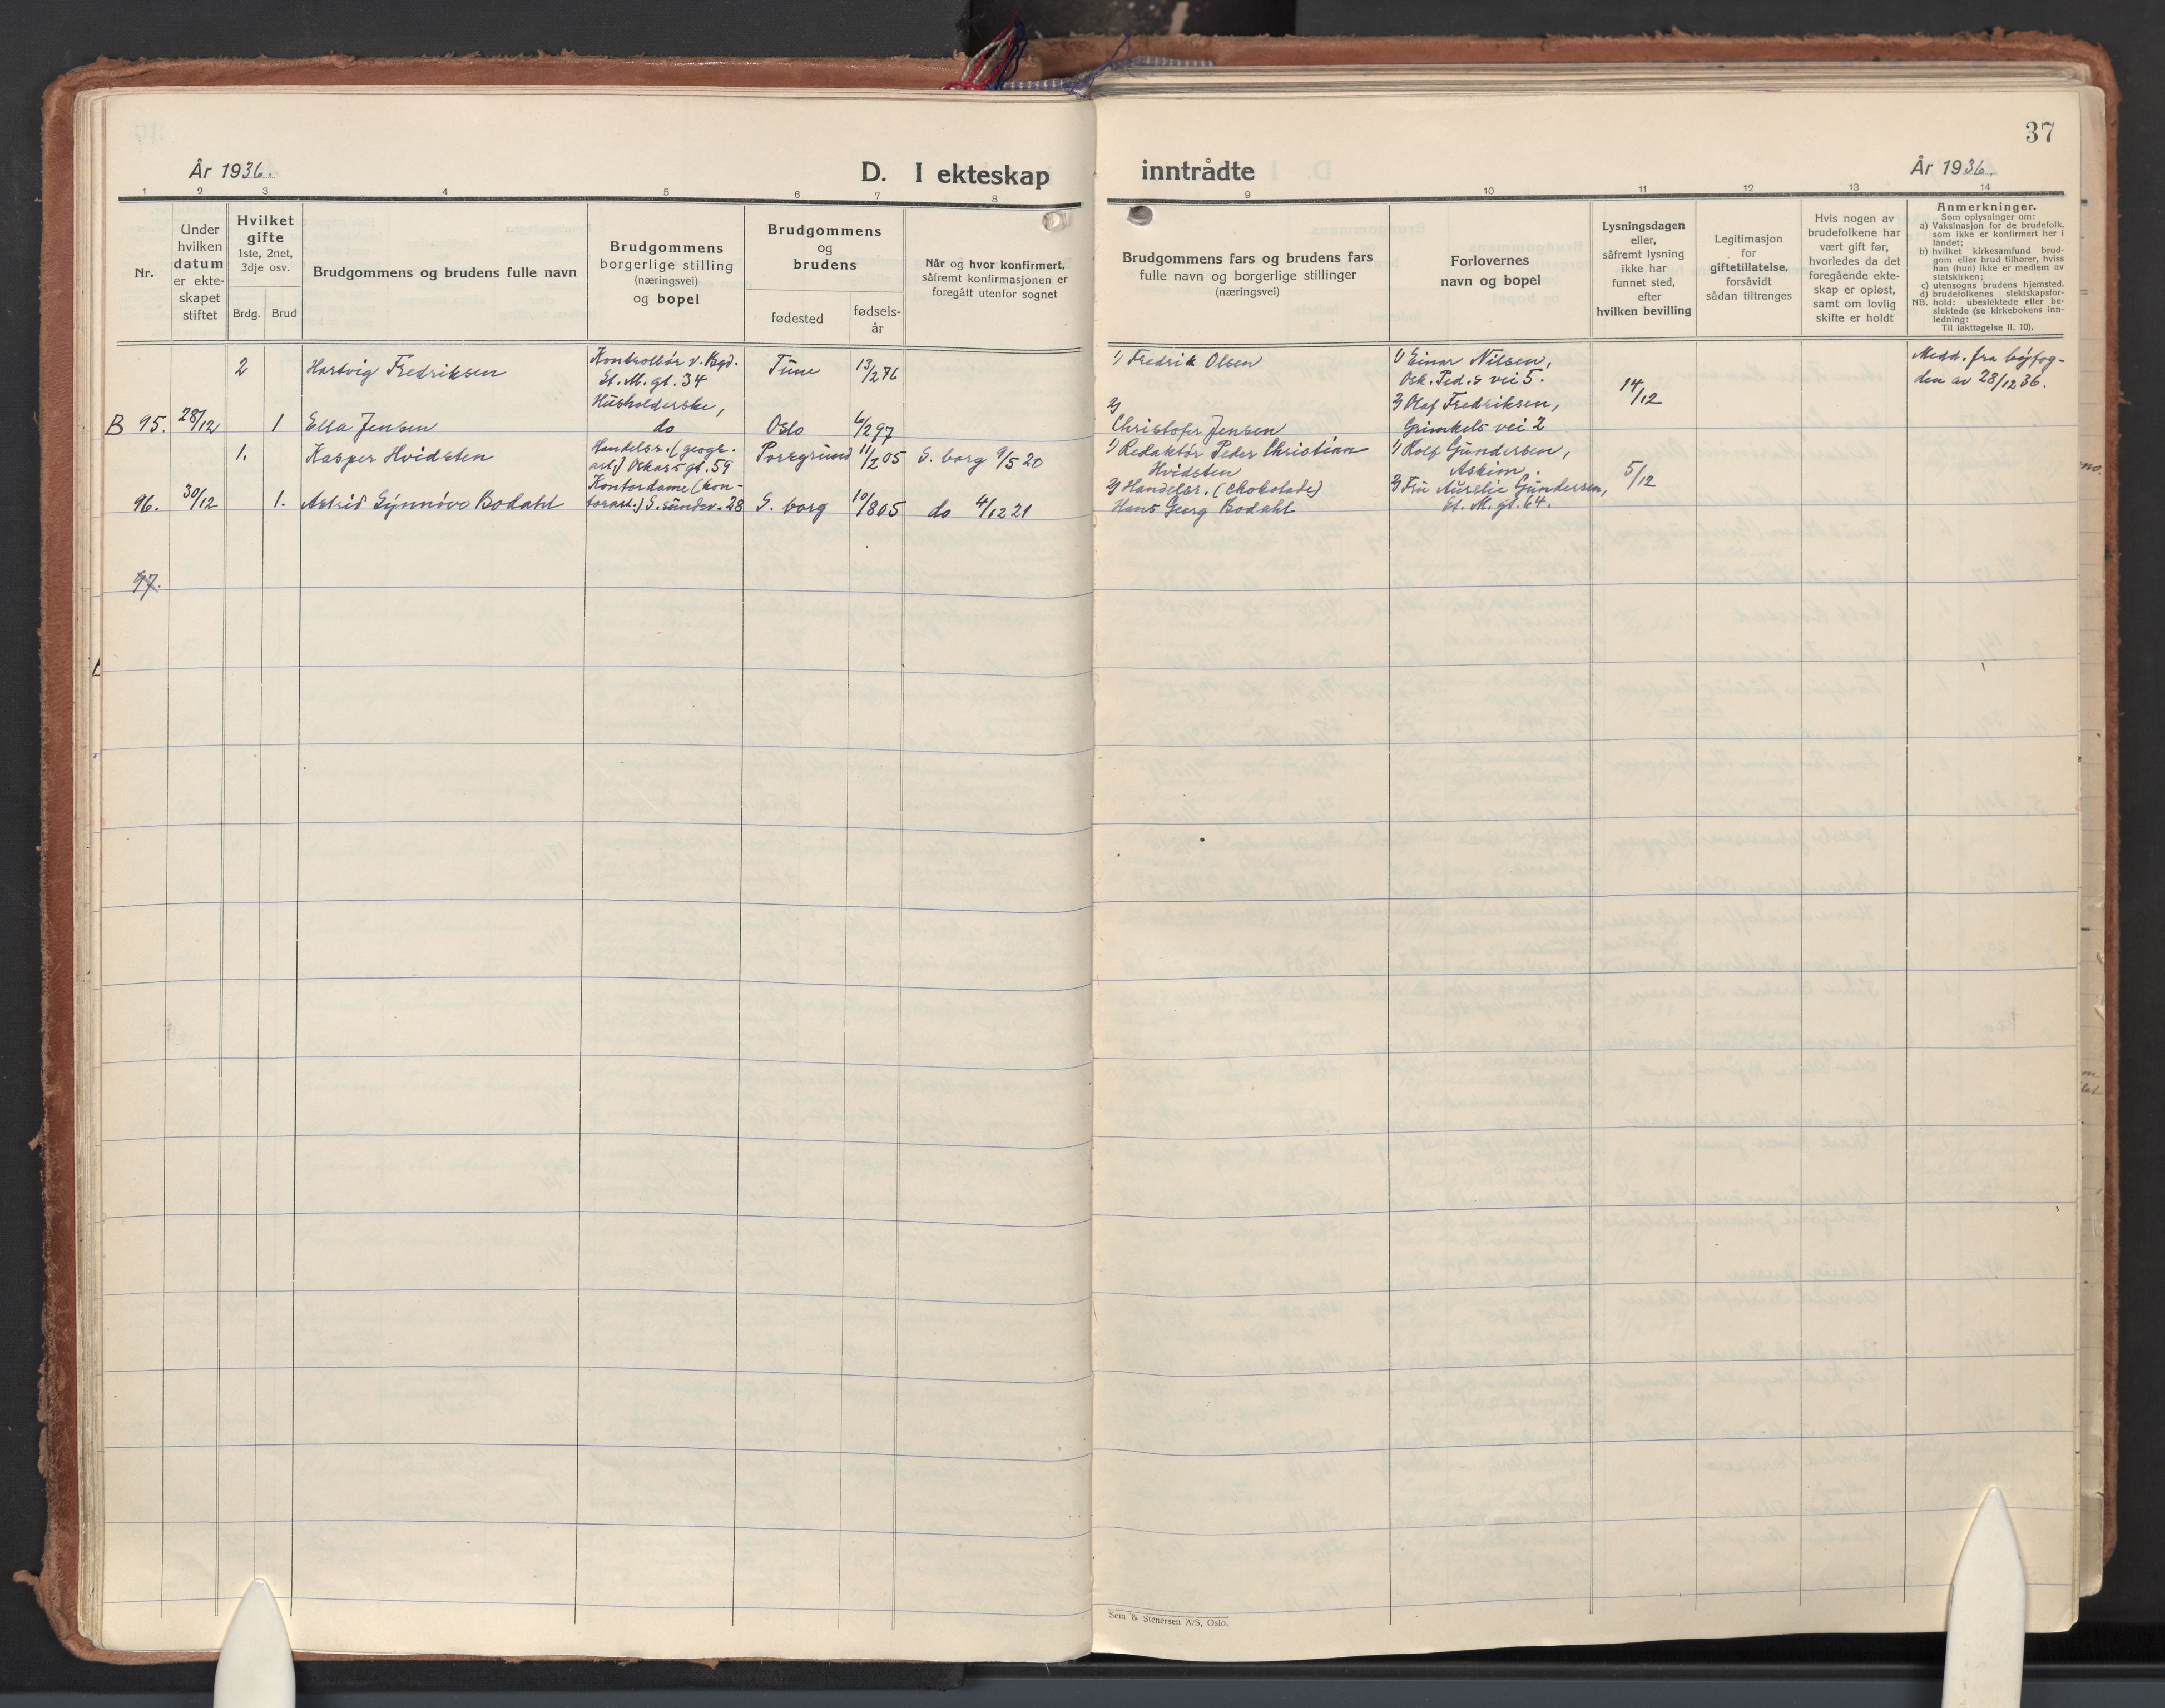 37
År 1936.
D. I ekteskap
inntrådte
År 1936.
1
2
3
4
5
6
7
8
9
10
11
12
13
14
Nr.
Under
hvilken
datum
er ekte-
skapet
stiftet
Hvilket
gifte
1ste, 2net,
3dje osv.
Brdg.
Brud
Brudgommens og brudens fulle navn
Brudgommens
borgerlige stilling
(næringsvei)
og bopel
Brudgommens
og
brudens
fødested
fødsels-
år
Når og hvor konfirmert,
såfremt konfirmasjonen er
foregått utenfor sognet
Brudgommens fars og brudens fars
fulle navn og borgerlige stillinger
(næringsvei)
Forlovernes
navn og bopel
Lysningsdagen
eller,
såfremt lysning
ikke har
funnet sted,
efter
hvilken bevilling
Legitimasjon
for
giftetillatelse,
forsåvidt
sådan tiltrenges
Hvis nogen av
brudefolkene har
vært gift før,
hvorledes da det
foregående ekte-
skap er opløst,
samt om lovlig
skifte er holdt
Anmerkninger.
Som oplysninger om:
a) Vaksinasjon for de brudefolk,
som ikke er konfirmert her i
landet;
b) hvilket kirkesamfund brud-
gom eller brud tilhører, hviss
han (hun) ikke er medlem av
statskirken;
c) utensogns brudens hjemsted.
d) brudefolkenes slektskapsfor-
NB. hold: ubeslektede eller be-
slektede (se kirkebokens inn-
ledning:
Til iakttagelse II. 10).
2
Hartvig Fredriksen
Kontrollør v. Bgd.
St. M. gt. 34
Tune
13/2 76
1) Fredrik Olsen
1) Einar Nilsen,
Osk. Ped.s vei 5.
14/12
Medd. fra byfog-
den av 28/12 36.
B 95.
28/12
1
Ella Jensen
Husholderske,
do
Oslo
6/2 97
2)
Christofer Jensen
2) Olaf Fredriksen,
Grimkels vei 2
1.
Kasper Hvidsten
Handelsr. (geogr.
art.) Oskars gt. 59
Porsgrund
11/2 05
S. borg 9/5 20
1) Redaktør Peder Christian
Hvidsten
1) Rolf Gundersen,
Askim.
5/12
96.
30/12
1.
Astrid Synnøve Bodahl
Kontordame (kon-
torart.) S. sundv. 28
S. borg
10/8 05
do 4/12 21
2) Handelsr. (chokolade)
Hans Georg Bodahl
2) Fru Aurelie Gundersen,
St. M. gt. 64.
97.
Sem & Stenersen A/S, Oslo.